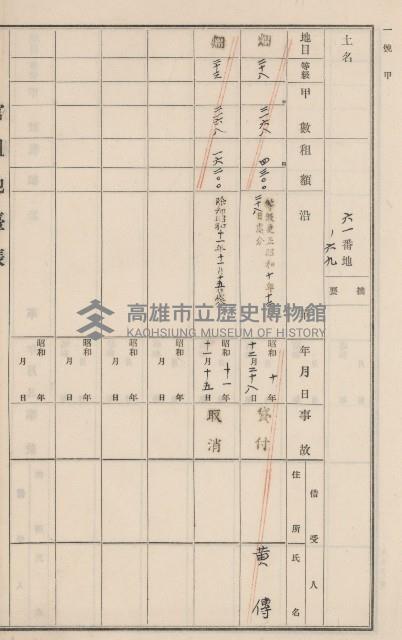 一號甲
土名
六一番地
ノ六九
摘要
地目
等級
甲數
租額
沿革
年月日
事故
借受人
住所
氏名
畑
二十八
二一六八
四三〇〇
等級更正昭和十年十二月
二十八日
昭和十年
十二月二十八日
貸付
黃傳
畑
二十三
二一六八
昭和十一年
十一月十五日
取消
昭和年
月日
昭和年
月日
昭和年
月日
昭和年
月日
官租地臺帳
高雄市立歷史博物館
KAOHSIUNG MUSEUM OF HISTORY